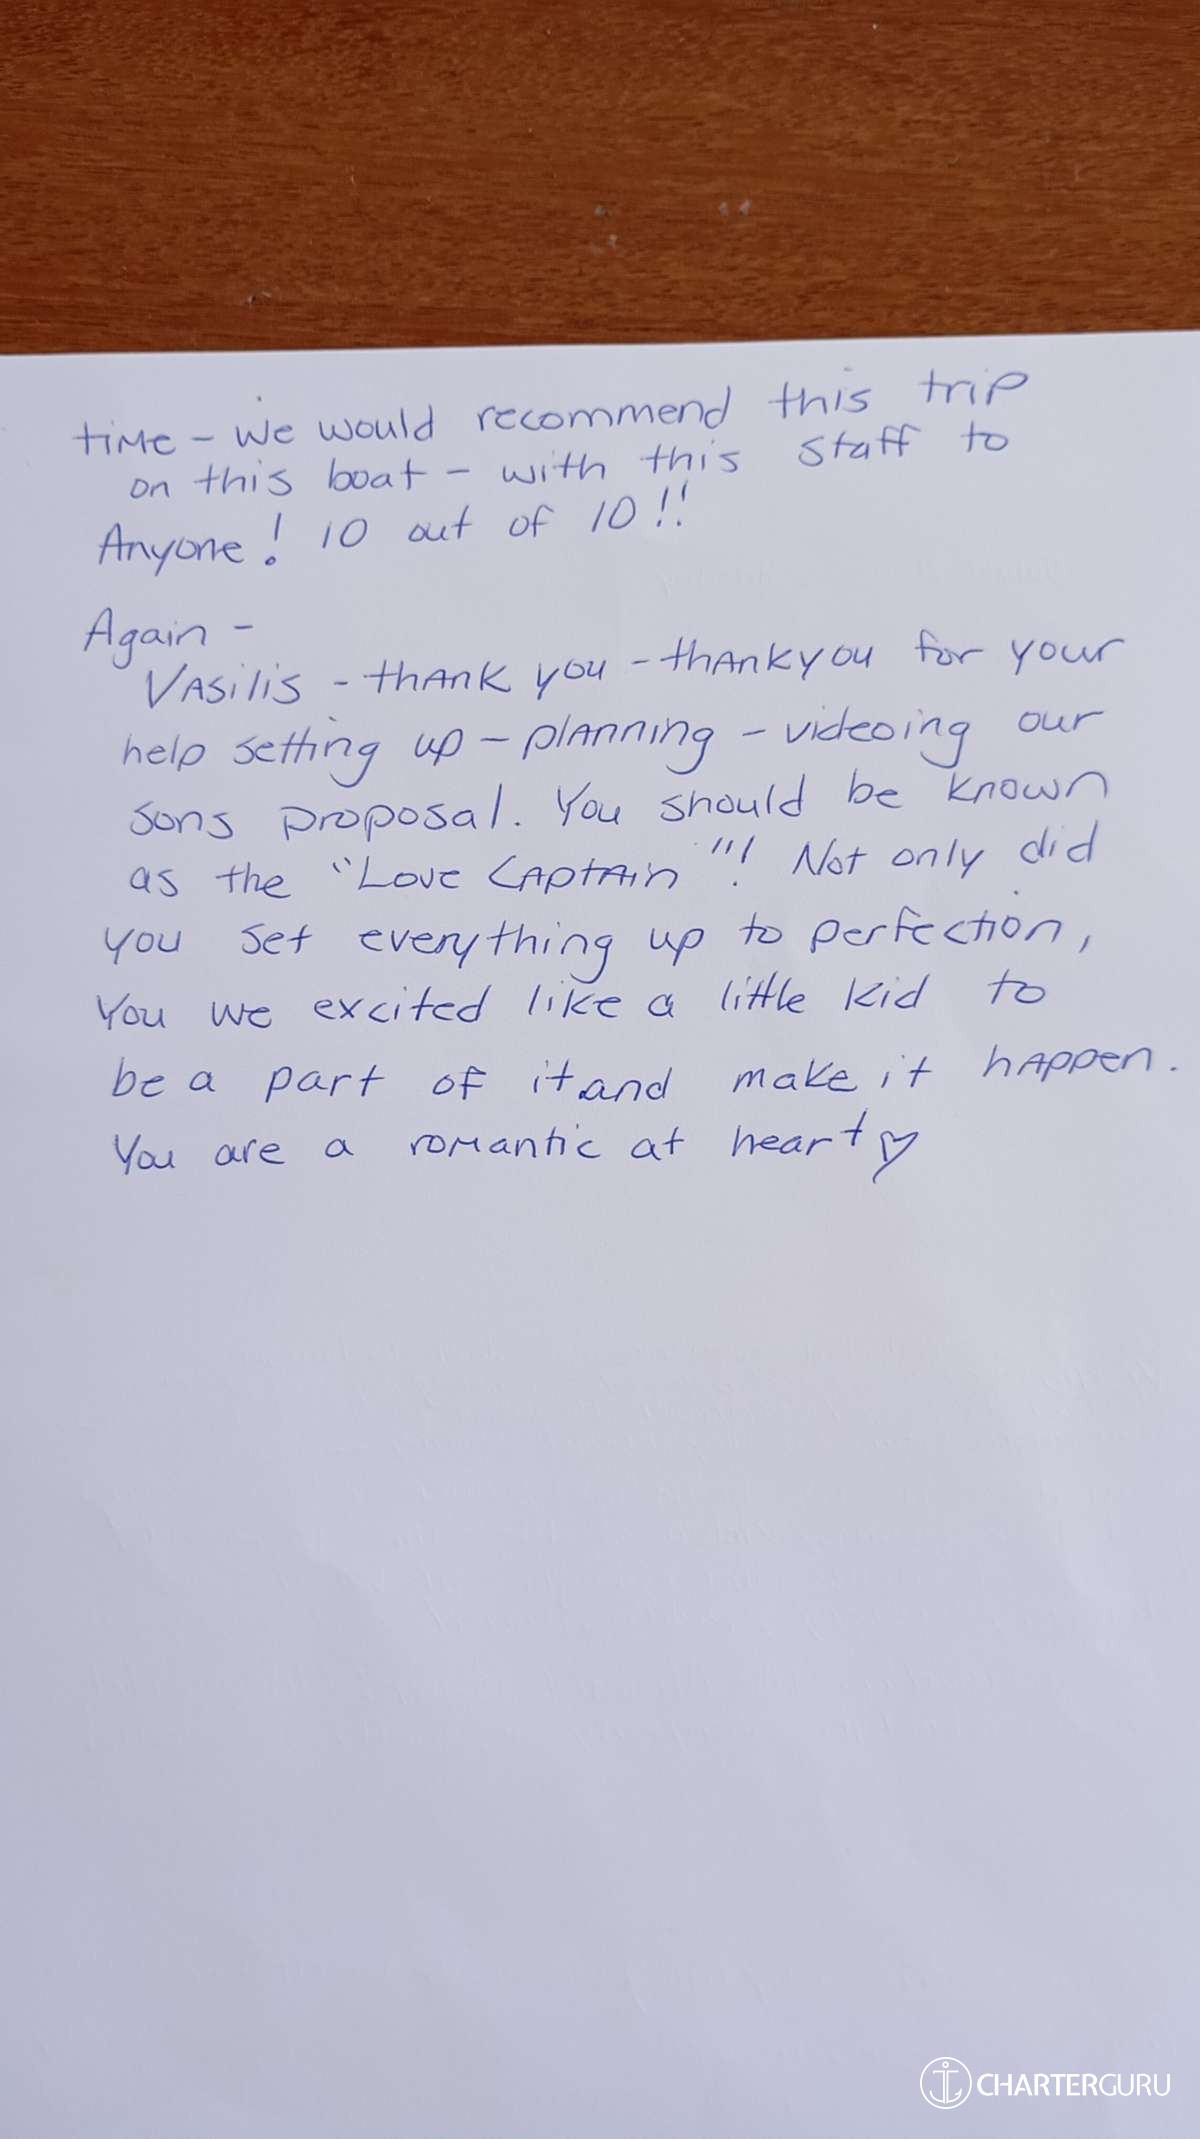 time - We would recommend this trip
on this boat - with this staff to
Anyone! 10 out of 10!!
Again -
Vasilis - thank you - thankyou for your
help setting up - planning - videoing our
sons proposal. You should be known
as the "Love Captain"! Not only did
you set everything up to perfection,
You we excited like a little kid to
be a part of it and make it happen.
You are a romantic at heart ♡
CHARTERGURU